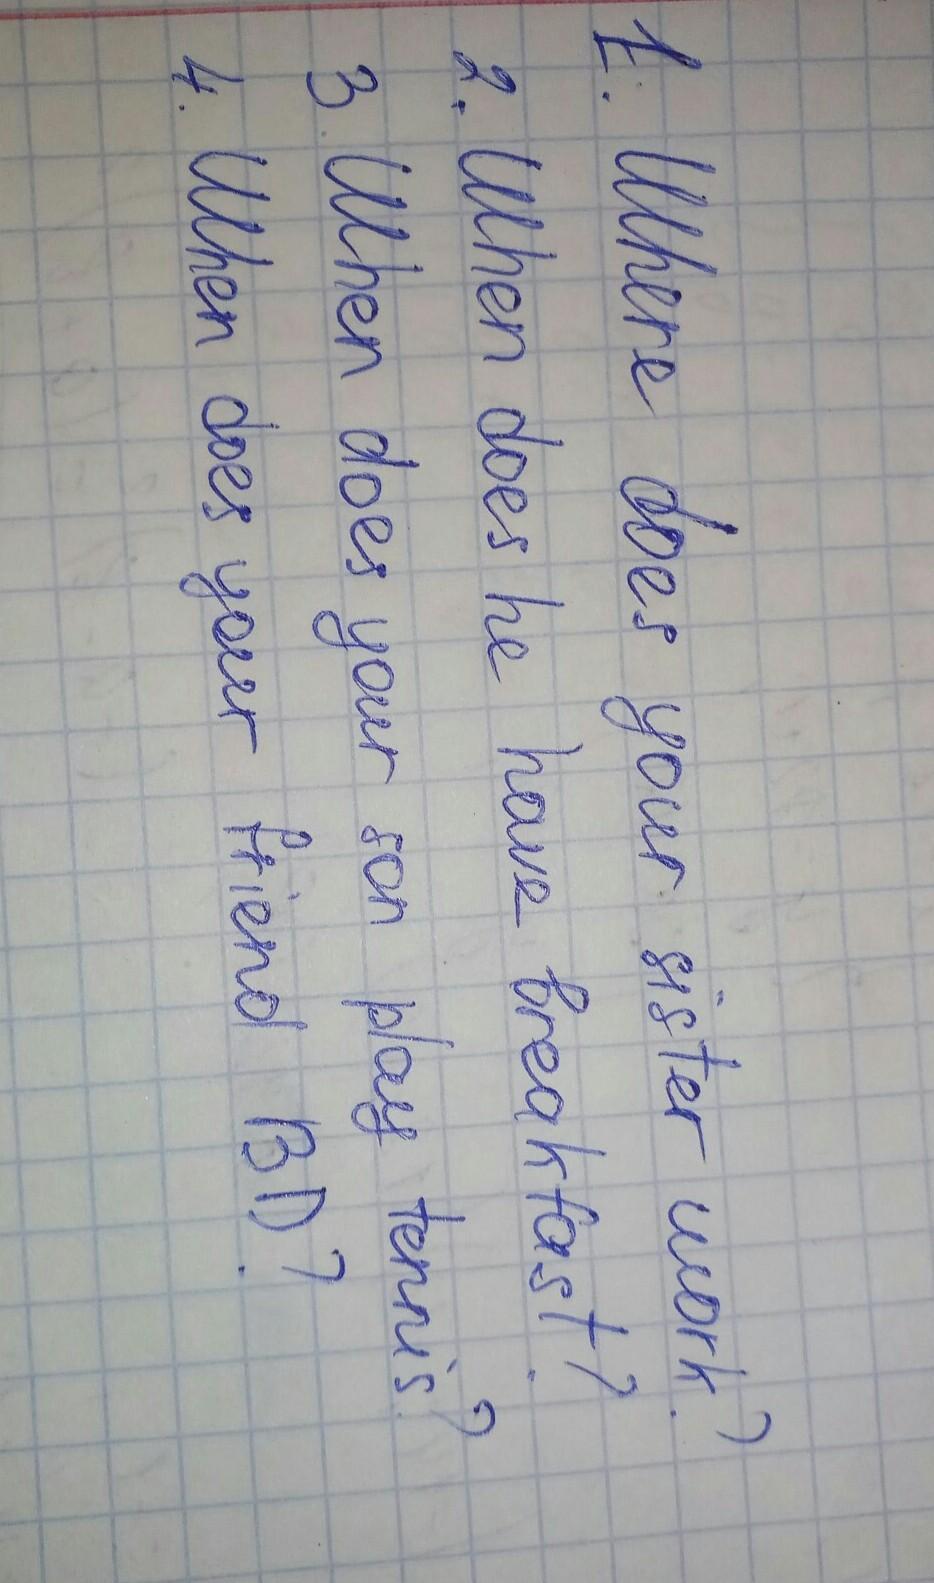 1. Where does your sister work?
2. When does he have breakfast?
3. When does your son play tennis?
4. When does your friend BD?